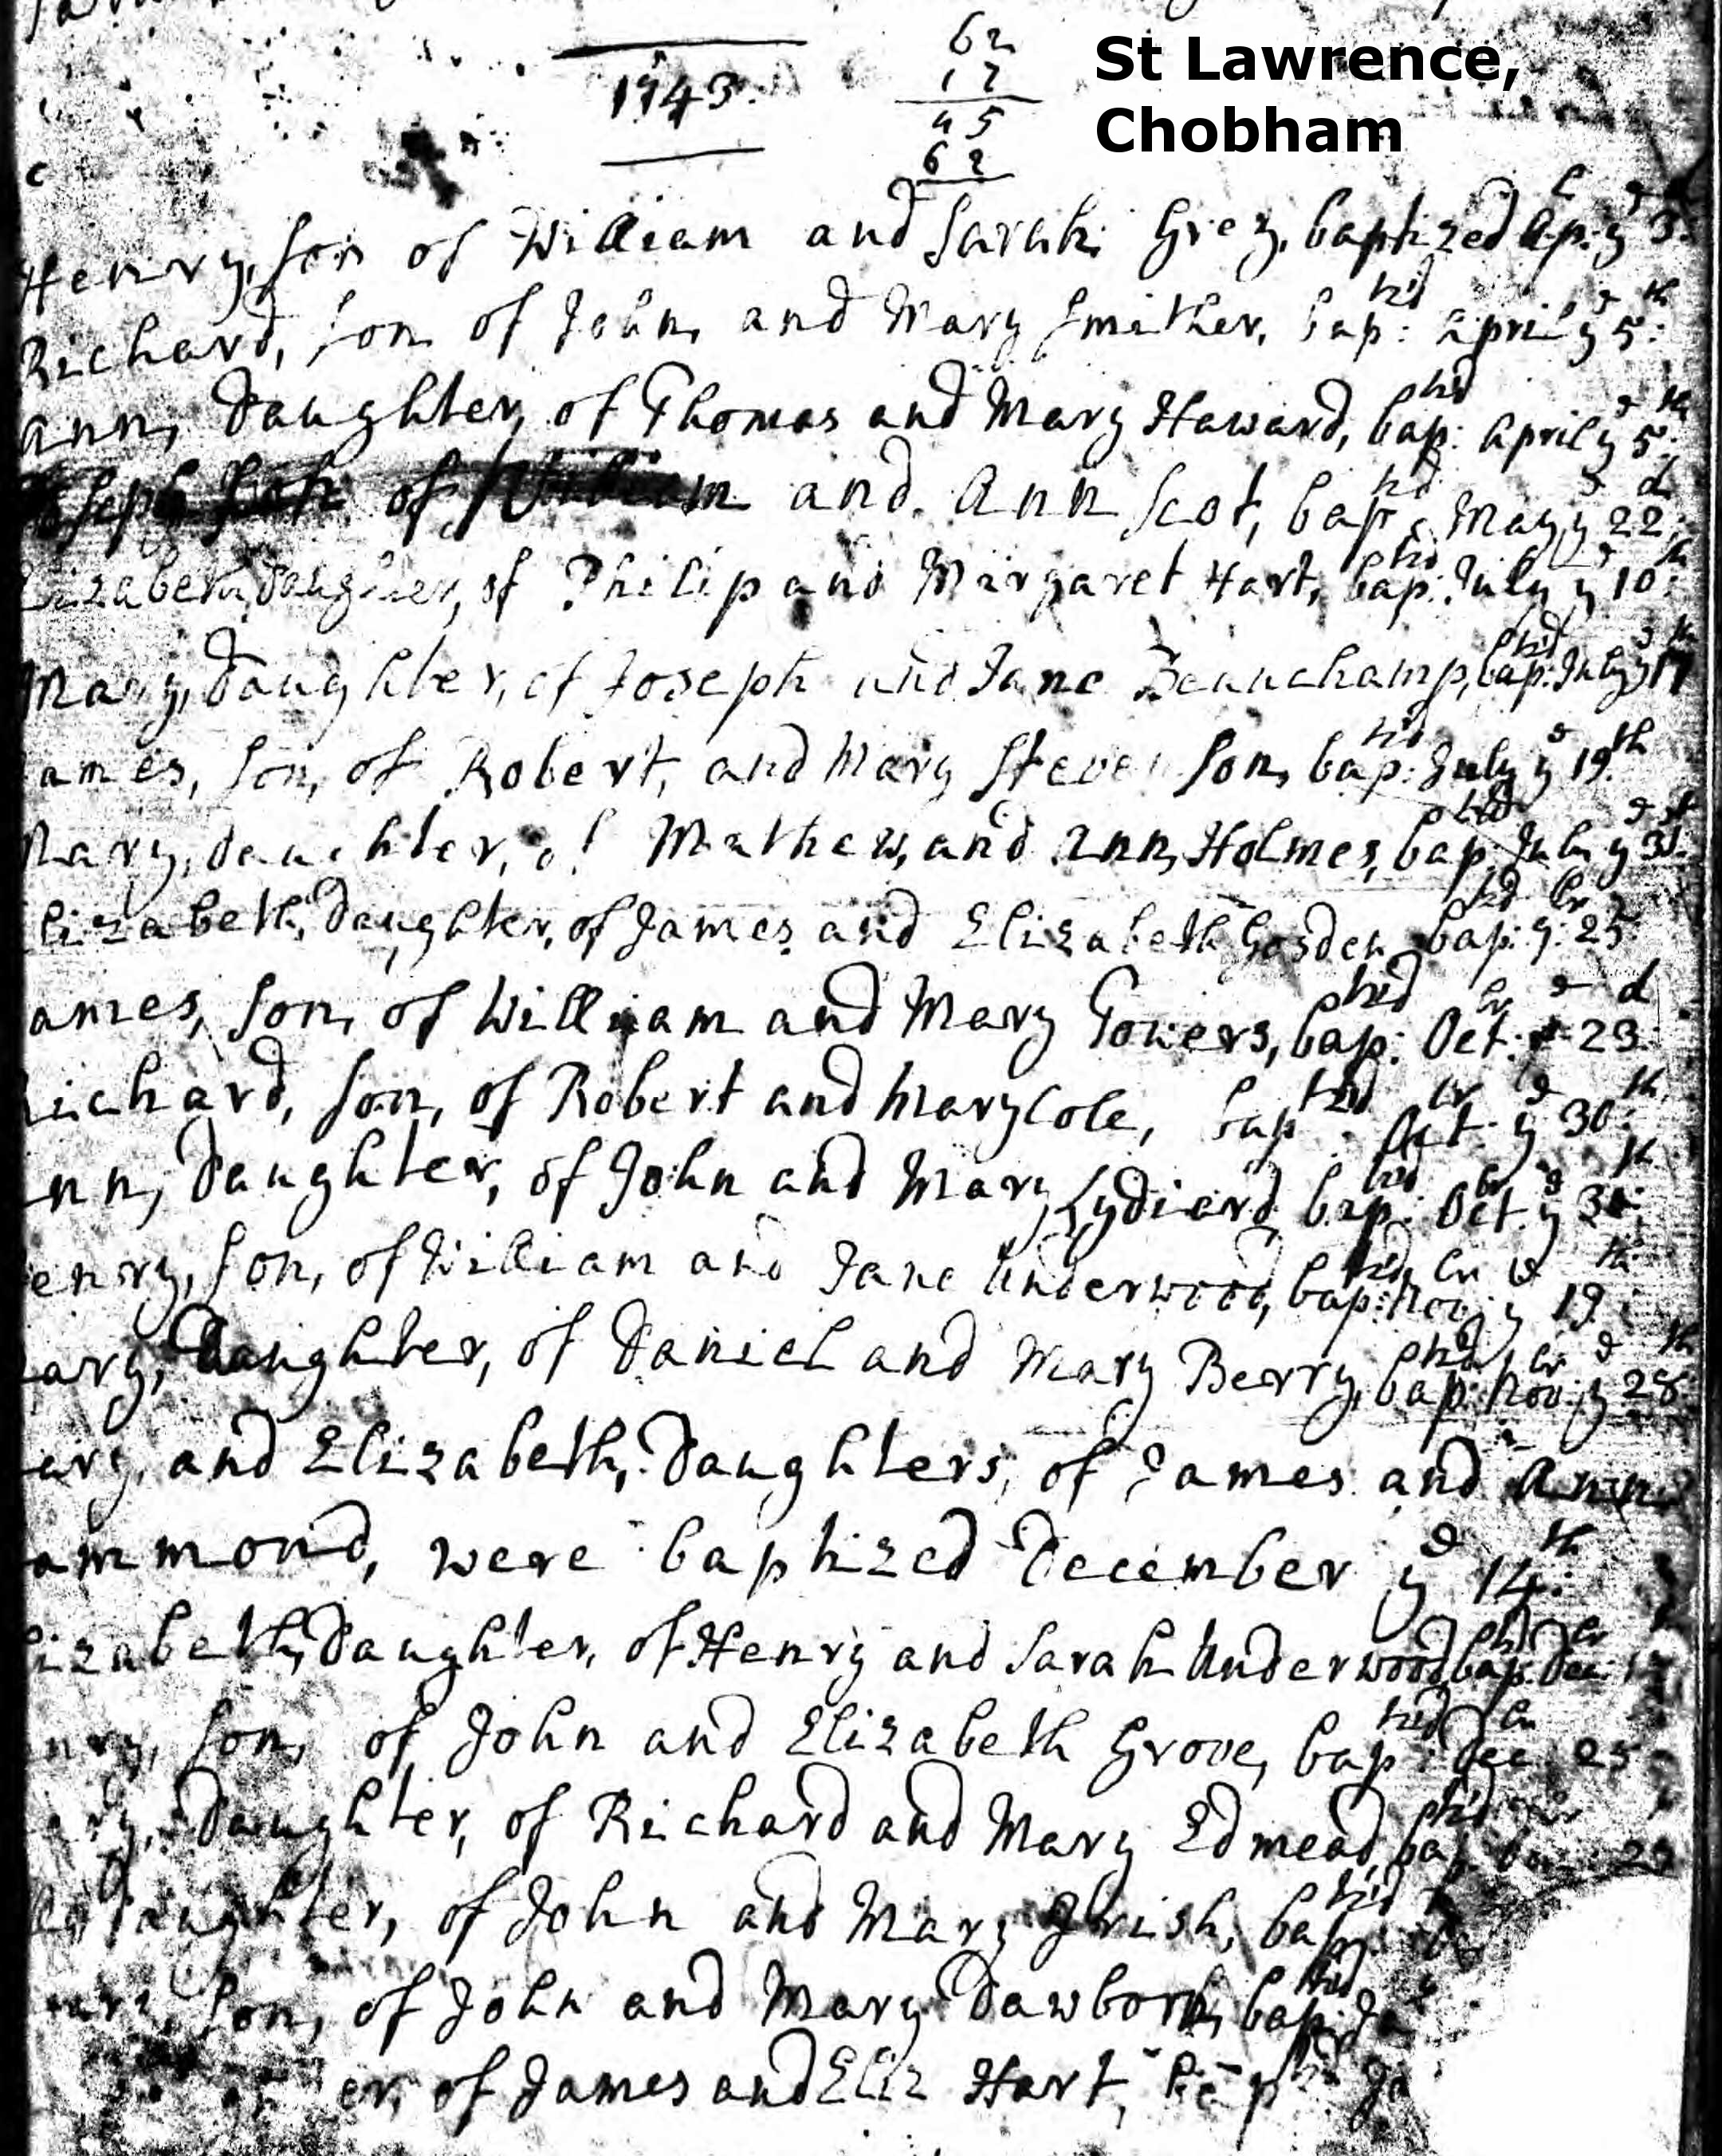 1743.
62
17
45
62
St Lawrence,
Chobham
Henry, son of William and Sarah Grey, baptized Ap:l ye 3.
Richard, son of John, and Mary Smither, bap:tzd April ye 5th:
Ann, Daughter, of Thomas and Mary Haward, bap:tzd April ye 5th:
Joseph Son of William and Ann Scot, bap:tzd May ye 22d:
Elizabeth, Daughter, of Philip and Margaret Hart, bap:tzd July ye 10th:
Mary, Daughter, of Joseph and Jane Beauchamp, bap:tzd July ye 17th
ames, son, of Robert, and Mary Stevenson, bap:tzd July ye 19th
Mary, daughter, of Mathew, and Ann, Holmes, bap:tzd July ye 31st:
lizabeth, Daughter, of James and Elizabeth Gosden bap:tzd 9:br 25
ames, son, of William and Mary Towers, bap:tzd Oct:br ye 23d:
Richard, son, of Robert and Mary Cole, bap:tzd Oct:br ye 30th:
nn, Daughter, of John and Mary Lydierd, bap:tzd Oct:br ye 30th:
enry, son, of William and Jane Underwood, bap:tzd Nov:br ye 19th:
ary, Daughter, of Daniel and Mary Berry, bap:tzd Nov:br ye 28th
ary, and Elizabeth, Daughters, of James and Ann
ammond, were baptized December ye 14th:
lizabeth, Daughter, of Henry and Sarah Underwood, bap:tzd Dec:br
nry, son, of John and Elizabeth Grove, bap:tzd Dec:br 25
ry, Daughter, of Richard and Mary Edmead, bap:tzd 29
Daughter, of John and Mary Irish, bap:tzd
son, of John and Mary Dawborn, bap:tzd Ja
er, of James and Eliz Hart, bap:tzd Ja